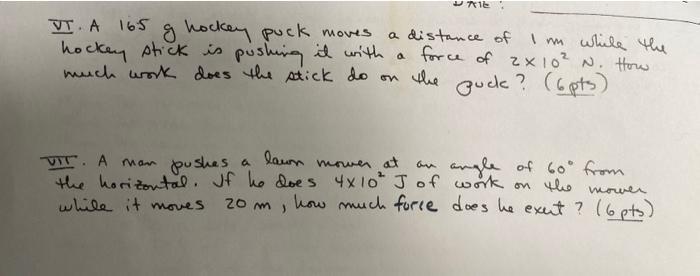 DATE:
VI. A 165 g hockey puck moves a distance of 1 m while the
hockey stick is pushing it with a force of 2×10² N. How
much work does the stick do on the puck? (6 pts)
VII. A man pushes a lawn mower at an angle of 60° from
the horizontal. If he does 4×10² J of work on the mower
while it moves 20 m, how much force does he exert? (6 pts)